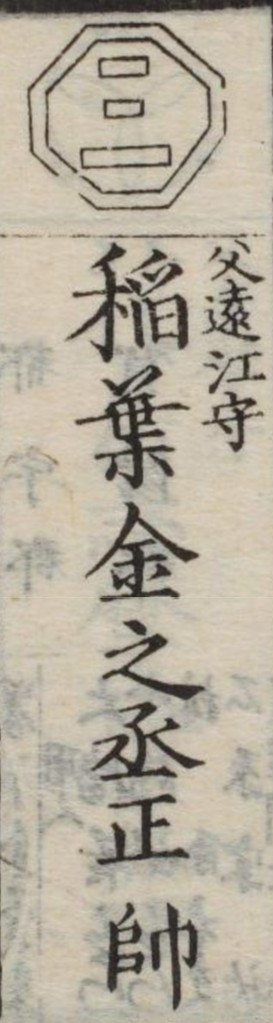 父遠江守
稲葉金之丞正帥